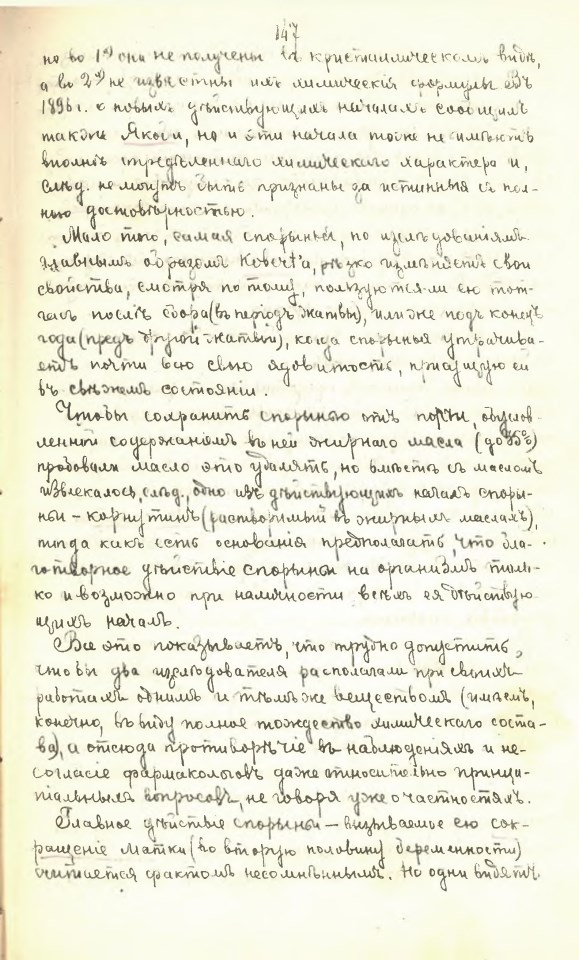 147
но во 1х они не получены въ кристаллическомъ видѣ,
а во 2х не извѣстны ихъ химическія формулы. Въ
1896 г. о новыхъ дѣйствующихъ началахъ сообщилъ
также Якоби, но и эти начала тоже не имѣютъ
вполнѣ опредѣленнаго химическаго характера и,
слѣд. не могутъ быть признаны за истинныя съ пол-
ною достовѣрностью.
Мало того, самая спорынья, по изслѣдованіямъ
главнымъ образомъ Kobert'а, рѣзко измѣняетъ свои
свойства, смотря потому, пользуются-ли ею тот-
часъ послѣ сбора (въ періодъ жатвы), или же подъ конецъ
года (предъ другой жатвой), когда спорынья утрачива-
етъ почти всю свою ядовитость, присущую ей
въ свѣжемъ состояніи.
Чтобы сохранить спорынью отъ порчи, обуслов-
ленной содержаніемъ въ ней жирнаго масла (до 35%)
пробовали масло это удалять, но вмѣстѣ съ масломъ
извлекалось, слѣд., одно изъ дѣйствующихъ началъ споры-
ньи – корнутинъ (растворимый въ жирныхъ маслахъ),
тогда какъ есть основанія предполагать, что бла-
готворное дѣйствіе спорыньи на организмъ толь-
ко и возможно при наличности всѣхъ ея дѣйствую-
щихъ началъ.
Все это показываетъ, что трудно допустить,
чтобы два изслѣдователя располагали при своихъ
работахъ однимъ и тѣмъ же веществомъ (имѣемъ,
конечно, въ виду полное тождество химическаго соста-
ва), а отсюда противорѣчіе въ наблюденіяхъ и не-
согласіе фармакологовъ даже относительно принци-
піальныхъ вопросовъ, не говоря уже о частностяхъ.
Главное дѣйствіе спорыньи – вызываемое ею сок-
ращеніе матки (во вторую половину беременности)
считается фактомъ несомнѣннымъ. Но одни видятъ